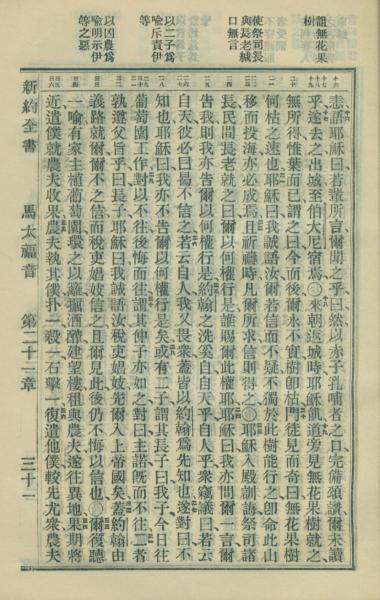 詛無花果
樹
使祭司長
與長老緘
口無言
以二子爲
喻斥責伊
等
以凶農爲
喻明示伊
等之惡
恚語耶穌曰若輩所言爾聞之乎曰然以赤子乳哺者之口完備頌讚爾未讀
乎遂去之出城至伯大尼宿焉○來朝返城時耶穌飢道旁見無花果樹就之
無所得惟葉而已謂之曰今而後爾永不實樹卽枯門徒見而奇曰無花果樹
何枯之速也耶穌曰我誠語汝爾若信而不疑不獨於此樹能行之卽命此山
移而投海亦必成焉且祈禱時凡爾所求信則得之○耶穌入殿訓誨祭司諸
長民間長老就之曰爾以何權行是誰賜爾此權耶耶穌曰我亦問爾一言爾
告我則我亦告爾以何權行是約翰之洗奚自自天乎自人乎衆竊議曰若云
自天彼必曰曷不信之若云自人我又畏衆蓋皆以約翰爲先知也遂對曰不
知也耶穌曰我亦不告爾以何權行是矣或有二子謂其長子曰我子今日往
葡萄園工作對以不往後悔而往謂其仲子亦如之對曰主諾旣而不往二者
孰遵父旨乎曰長子耶穌曰我誠語汝稅吏娼妓先爾入上帝國矣蓋約翰由
義路就爾爾不之信而稅吏娼妓信之且爾見此後仍不悔以信也○爾復聽
一喻有家主植葡萄園環之以籬掘酒醡建望樓租與農夫遂往異地果期將
近遣僕就農夫收果農夫執其僕扑一殺一石擊一復遣他僕較先尤衆農夫
新約全書 馬太福音 第二十一章 三十一